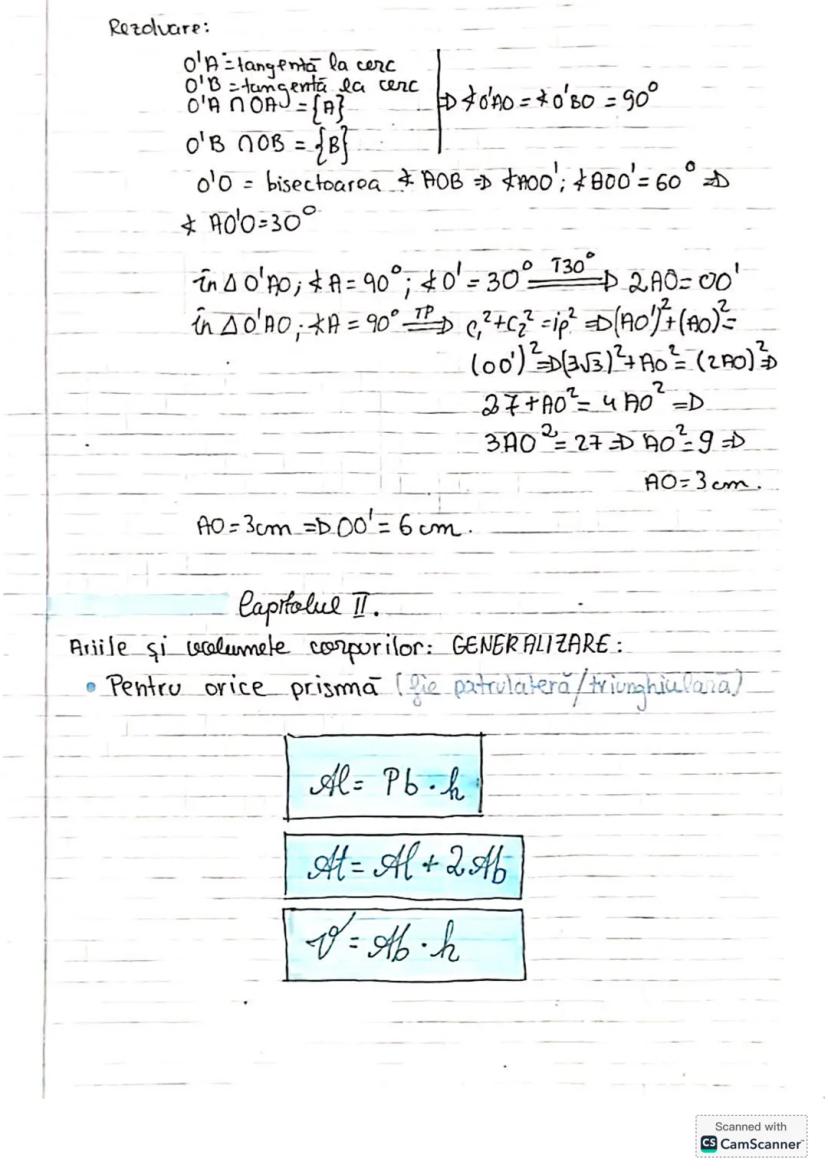 Rezolvare:
O'A = tangentă la cerc
O'B = tangentă la cerc
O'A ∩ OA = {A}
O'B ∩ OB = {B}
=> ∢O'AO = ∢O'BO = 90°
O'O = bisectoarea ∢AOB => ∢AOO'; ∢BOO' = 60° =>
∢ AO'O = 30°
în Δ O'AO; ∢A = 90°; ∢O' = 30° T30° => 2AO = OO'
în Δ O'AO; ∢A = 90° TP => c₁² + c₂² = ip² => (AO')² + (AO)² =
(OO')² => (3√3)² + AO² = (2AO)² =>
27 + AO² = 4AO² =>
3AO² = 27 => AO² = 9 =>
AO = 3 cm.
AO = 3cm => OO' = 6 cm.
Capitolul II.
Ariile și volumele corpurilor: GENERALIZARE:
• Pentru orice prismă (fie patrulateră/triunghiulară)
Al = Pb · h
At = Al + 2Ab
V = Ab · h
Scanned with
CS CamScanner